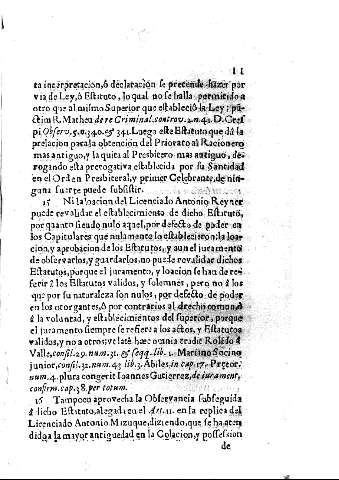 11
ta incerpretacion, ò declaraciõ se pretende hazer por
via de Ley, ò Estatuto, lo qual no se halla permitido à
otro que al mismo Superior que estableciò la Ley; pũ-
ctim R. Matheu de re Criminal. controv. 2. n. 42. D. Cres
pi Observ. 5. n. 340. es 341. Luego este Estatuto que dà la
prelacion para la obtencion del Priorato al Racionero
mas antiguo, y la quita al Presbitero mas antiguo, de-
rogando esta prerogativa establecida por su Santidad
en el Orden Presbiteral, y primer Celebrante, de nin-
guna suerte puede subsistir.
15 Ni la loacion del Licenciado Antonio Reyner
puede revalidar el establecimiento de dicho Estatuto,
por quanto siendo nulo aquel, por defecto de poder en
los Capitulares que nulamente lo establecieron; la loa-
cion, y aprobacion de los Estatutos, y aun el juramento
de observarlos, y guardarlos, no puede revalidar dichos
Estatutos, porque el juramento, y loacion se han de re-
ferir à los Estatutos validos, y solemnes, pero no à los
que por su naturaleza son nulos, por defecto de poder
en los otorgantes, ò por contrarios al drecho comun, ò
à la voluntad, y establecimientos del superior, porque
el juramento siempre se refiere à los actos, y Estatutos
validos, y no a otros; vt latè hæc omnia tradit Rolãdo à
Valle, consil. 29. num. 31. es seqq. lib. 2. Mariano Socino
junior, consil. 32. num. 43 lib. 3. Abiles, in cap. 17. Prætor:
num. 4. plura congerit Ioannes Gutierrez, de iurament,
confirm. cap. 38. per totum.
16 Tampoco aprovecha la Observancia subseguida
à dicho Estatuto, alegada en el Art. 11. en la replica del
Licenciado Antonio Mizuque, diziendo, que se ha aten
dido a la mayor antiguedad en la Colacion, y possession
de